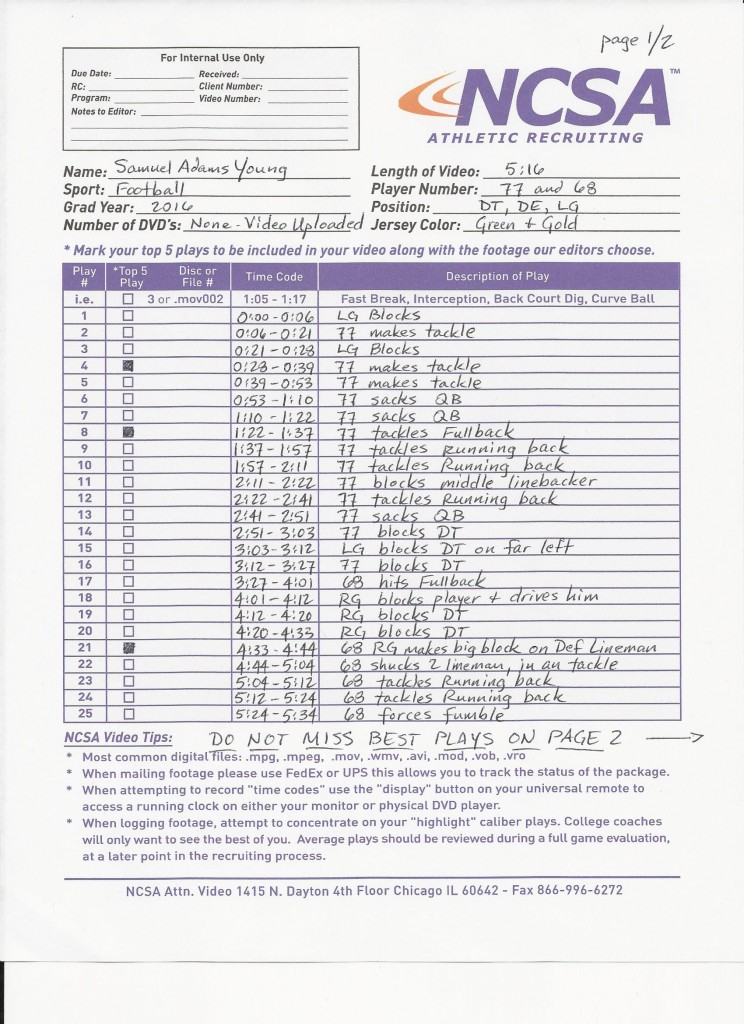 page 1/2
For Internal Use Only
Due Date: Received:
RC: Client Number:
Program: Video Number:
Notes to Editor:
NCSA™
ATHLETIC RECRUITING
Name: Samuel Adams Young Length of Video: 5:16
Sport: Football Player Number: 77 and 68
Grad Year: 2016 Position: DT, DE, LG
Number of DVD's: None - Video Uploaded Jersey Color: Green + Gold
* Mark your top 5 plays to be included in your video along with the footage our editors choose.
Play # *Top 5 Play Disc or File # Time Code Description of Play
i.e. 3 or .mov002 1:05 - 1:17 Fast Break, Interception, Back Court Dig, Curve Ball
1 0:00 - 0:06 LG Blocks
2 0:06 - 0:21 77 makes tackle
3 0:21 - 0:28 LG Blocks
4 0:28 - 0:39 77 makes tackle
5 0:39 - 0:53 77 makes tackle
6 0:53 - 1:10 77 sacks QB
7 1:10 - 1:22 77 sacks QB
8 1:22 - 1:37 77 tackles Fullback
9 1:37 - 1:57 77 tackles running back
10 1:57 - 2:11 77 tackles Running back
11 2:11 - 2:22 77 blocks middle linebacker
12 2:22 - 2:41 77 tackles Running back
13 2:41 - 2:51 77 sacks QB
14 2:51 - 3:03 77 blocks DT
15 3:03 - 3:12 LG blocks DT on far left
16 3:12 - 3:27 77 blocks DT
17 3:27 - 4:01 68 hits Fullback
18 4:01 - 4:12 RG blocks player + drives him
19 4:12 - 4:20 RG blocks DT
20 4:20 - 4:33 RG blocks DT
21 4:33 - 4:44 68 RG makes big block on Def Lineman
22 4:44 - 5:04 68 shucks 2 lineman, in an tackle
23 5:04 - 5:12 68 tackles Running back
24 5:12 - 5:24 68 tackles Running back
25 5:24 - 5:34 68 forces fumble
NCSA Video Tips: DO NOT MISS BEST PLAYS ON PAGE 2 →
* Most common digital files: .mpg, .mpeg, .mov, .wmv, .avi, .mod, .vob, .vro
* When mailing footage please use FedEx or UPS this allows you to track the status of the package.
* When attempting to record "time codes" use the "display" button on your universal remote to
access a running clock on either your monitor or physical DVD player.
* When logging footage, attempt to concentrate on your "highlight" caliber plays. College coaches
will only want to see the best of you. Average plays should be reviewed during a full game evaluation,
at a later point in the recruiting process.
NCSA Attn. Video 1415 N. Dayton 4th Floor Chicago IL 60642 - Fax 866-996-6272